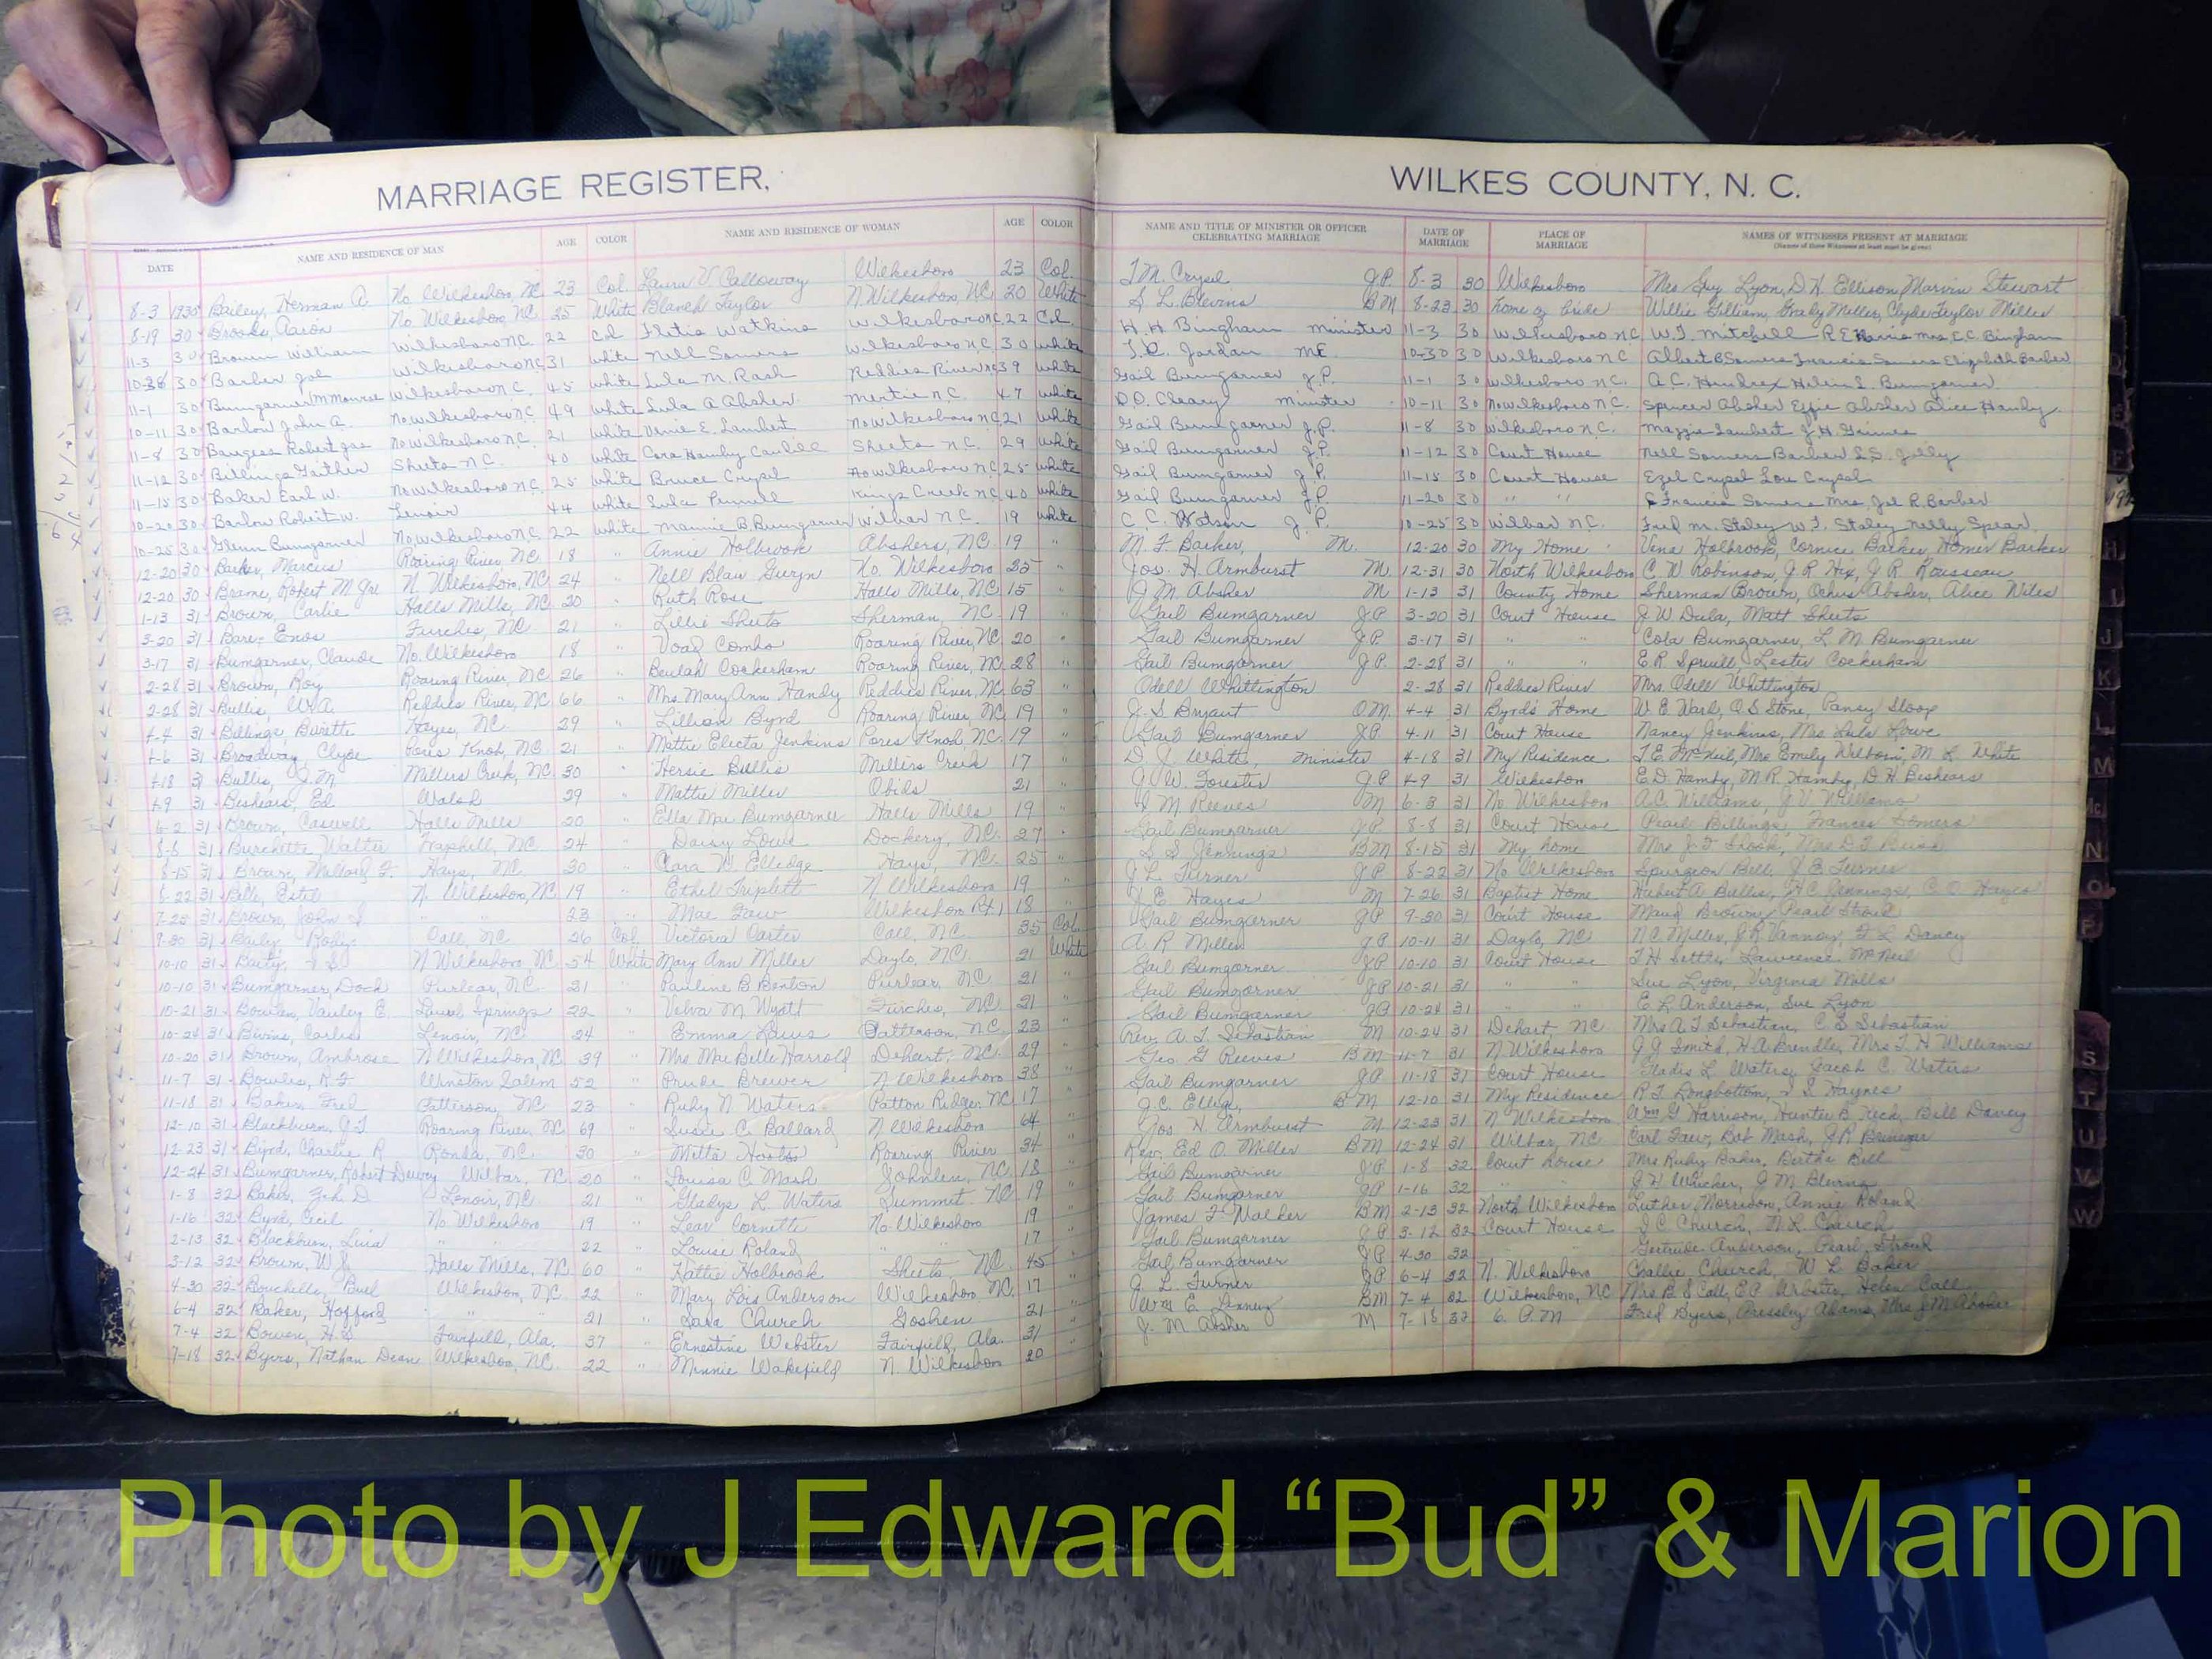 MARRIAGE REGISTER,
WILKES COUNTY, N. C.
DATE NAME AND RESIDENCE OF MAN AGE COLOR NAME AND RESIDENCE OF WOMAN AGE COLOR
NAME AND TITLE OF MINISTER OR OFFICER CELEBRATING MARRIAGE DATE OF MARRIAGE PLACE OF MARRIAGE NAMES OF WITNESSES PRESENT AT MARRIAGE
(Names of three Witnesses at least must be given)
8-3 1930 Bailey, Herman A. No Wilkesboro, NC 23 Col. Laura V. Calloway Wilkesboro 23 Col.
8-19 30 Brooks, Aaron No Wilkesboro, NC 25 White Blanch Taylor N. Wilkesboro, NC 20 White
11-3 30 Brown William Wilkesboro N.C. 22 Col Watkins Wilkesboro N.C. 22 Col.
30 Barber Joe Wilkesboro N.C. 31 white Nell Somers Wilkesboro N.C. 30 white
11-1 30 Bumgarner Wilkesboro N.C. 45 white Lula M. Rash Reddies River NC 39 white
10-11 30 Barlow John A. No Wilkesboro N.C. 49 white Lula A Absher 47 white
11-8 30 Robert No Wilkesboro N.C. 21 white E. Lambert No Wilkesboro N.C. 21 white
11-12 30 Billings Sheets N.C. 40 white Cora Hamby Caudill Sheets N.C. 29 white
11-15 30 Baker Earl W. No Wilkesboro N.C. 25 white Bruce Crysel No Wilkesboro N.C. 25 white
10-20 30 Barlow Robert W. Lenoir 44 white Lula Kings Creek N.C. 40 white
10-25 30 Glenn Bumgarner No. Wilkesboro N.C. 22 white Mamie B. Bumgarner Wilbar N.C. 19 white
12-20 30 Barker, Marcus Roaring River, NC 18 " Annie Holbrook Abshers, NC 19 "
12-20 30 Brame, Robert M. Jr. N. Wilkesboro, NC 24 " Nell Blair Gwyn No. Wilkesboro 25 "
1-13 31 Brown, Carlie Halls Mills, NC 20 " Ruth Rose Halls Mills, NC 15 "
3-20 31 Bare, Enos Furches, NC 21 " Lillie Sheets Sherman, NC 19
3-17 31 Bumgarner, Claude No. Wilkesboro 18 " Voad Combs Roaring River, NC 20
2-28 31 Brown, Roy Roaring River, NC 26 " Beulah Cockerham Roaring River, NC 28 "
2-28 31 Bullis, W.A. Reddies River, NC 66 " Mrs. Mary Ann Handy Reddies River, NC 63 "
4-4 31 Billings, Burette Hayes, NC 29 " Lillian Byrd Roaring River, NC 19 "
4-6 31 Broadway, Clyde Pores Knob, NC 21 " Mattie Electa Jenkins Pores Knob, NC 19 "
4-18 31 Bullis, J.M. Millers Creek, NC 30 " Hersie Bullis Millers Creek 17 "
4-9 31 Beshears, Ed Walsh 29 " Mattie Miller Obids 21 "
6-2 31 Brown, Caswell Halls Mills 20 " Ella Mae Bumgarner Halls Mills 19 "
8-8 31 Burchette Walter Traphill, NC 24 " Daisy Lowe Dockery, NC. 27
8-15 31 Brown, Millard F. Hays, NC 30 " Cora W. Elledge Hays, NC. 25 "
8-22 31 Bell, Estel N. Wilkesboro, NC 19 " Ethel Triplett N Wilkesboro 19 "
7-25 31 Brown, John S. " " 23 " Mae Faw Wilkesboro Rt 1 18 "
9-30 31 Baily Call, NC 26 Col. Victoria Carter Call, NC. 35 Col.
10-10 31 N Wilkesboro, NC. 54 White Mary Ann Miller Daylo, NC. 21 White
10-10 31 Bumgarner, Dock Purlear, N.C. 21 " Pauline B Benton Purlear, NC 21 "
10-21 31 Bowlin, E. Laurel Springs 22 " Velva M. Wyatt Furches, NC 21 "
10-24 31 Bivins, Carles Lenoir, NC 24 " Emma Patterson, N.C. 23 "
10-20 31 Brown, Ambrose N. Wilkesboro, NC. 39 " Mrs Mae Belle Harrold Dehart, NC. 29 "
11-7 31 Bowles, R.F. Winston Salem 52 " Prude Brewer N Wilkesboro 38 "
11-18 31 Baker, Fred Patterson, NC 23 " Ruby N Waters Patton Ridge, NC 17 "
12-10 31 Blackburn, Roaring River, NC 69 " Susie C. Ballard N Wilkesboro 64 "
12-23 31 Byrd, Charlie R Ronda, NC. 30 " Roaring River 34 "
12-24 31 Bumgarner, Robert Dewey Wilbar, NC 20 " Louisa C. Mash NC. 18 "
1-8 32 Baker, D Lenoir, NC 21 " Gladys L. Waters Summit NC 19 "
1-16 32 Byrd, Cecil No. Wilkesboro 19 " Cornette No. Wilkesboro 19 "
2-13 32 Blackburn, " " 22 " Louise Roland " " 17 "
3-12 32 Brown, W. Halls Mills, NC 60 " Hattie Holbrook Sheets, NC. 45 "
4-30 32 Bouchelle, Wilkesboro, NC. 22 " Mary Lois Anderson Wilkesboro, NC. 17 "
6-4 32 Baker, Hafford " " 21 " Church Goshen 21 "
7-4 32 Bowen, Fairfield, Ala. 37 " Ernestine Webster Fairfield, Ala. 31 "
7-18 32 Byers, Nathan Dean Wilkesboro, NC. 22 " Minnie Wakefield N. Wilkesboro 20
T.M. Crysel J.P. 8-3 30 Wilkesboro Mrs Guy Lyon, D.H. Ellison, Marvin Stewart
S L Blevins BM 8-23 30 home of bride Willie Gilliam, Grady Miller, Clyde Taylor Miller
H. H Bingham minister 11-3 30 Wilkesboro N.C. W.T. Mitchell R E Harris Mrs. E.C. Bingham
Jordan M.E. 10-30 30 Wilkesboro N.C. Albert B Somers Francis Somers Elizabeth Barber
Gail Bumgarner J.P. 11-1 30 Wilkesboro N.C. A.C. Hendrex Helen L. Bumgarner
D.O. Cleary minister 10-11 30 No Wilkesboro N.C. Spencer Absher Effie Absher Alice Hamby
Gail Bumgarner J.P. 11-8 30 Wilkesboro N.C. Maggie Lambert J.H. Grimes
Gail Bumgarner J.P. 11-12 30 Court House Nell Somers Barber
Gail Bumgarner J.P. 11-15 30 Court House Ezel Crysel Lou Crysel
Gail Bumgarner J.P. 11-20 30 " " Francis Somers Mrs. Joe R. Barber
C. C. Watson J. P. 10-25 30 Wilbar N.C. Fred M. Staley W.F. Staley Nelly Spear
M. F. Barker, M. 12-20 30 My Home Vena Holbrook, Cornice Barker, Homer Barker
Jos. H. Armburst M. 12-31 30 North Wilkesboro C. W Robinson, J. R Hix, J. R. Rousseau
J. M. Absher M 1-13 31 County Home Sherman Brown, Ochus Absher, Alice Wiles
Gail Bumgarner J.P. 3-20 31 Court House J. W Dula, Matt Sheets
Gail Bumgarner J.P. 3-17 31 " " Cola Bumgarner, L. M. Bumgarner
Gail Bumgarner J.P. 2-28 31 " " E.R. Spruill, Lester Cockerham
Odell Whittington 2-28 31 Reddies River Mrs. Odell Whittington
J. S Bryant O.M. 4-4 31 Byrds Home W E. Ward, O.S Stone, Pansy Sloop
Gail Bumgarner J.P. 4-11 31 Court House Nancy Jenkins, Mrs Lula Lowe
D. J. White, minister 4-18 31 My Residence T.E. McNeil, Mrs Emily Welborn, M. L. White
J. W. Forester J.P. 4-9 31 Wilkesboro E.D. Hamby, M R. Hamby, D. H. Beshears
J M Reeves M 6-3 31 No Wilkesboro A.C. Williams, J. V. Williams
Gail Bumgarner J.P. 8-8 31 Court House Pearl Billings, Frances Somers
S. S. Jennings B.M 8-15 31 My home Mrs J. F. Shook, Mrs
J. L. Turner J.P 8-22 31 No Wilkesboro Spurgeon Bell, J. B. Turner
J. E. Hayes M 7-26 31 Baptist Home Hubert A Bullis, H.C. Jennings, C. O. Hayes
Gail Bumgarner J.P 9-30 31 Court House Maud Brown, Pearl Stroud
A. R. Miller J.P 10-11 31 Daylo, NC N.C. Miller, J.R. Vannoy, Dancy
Gail Bumgarner J.P 10-10 31 Court House T H Settle, Lawrence McNeil
Gail Bumgarner J.P 10-21 31 " " Sue Lyon, Virginia Mills
Gail Bumgarner J.P 10-24 31 " " E. L. Anderson, Sue Lyon
Rev. A. T. Sebastian M 10-24 31 Dehart, NC Mrs A T Sebastian, C S Sebastian
Geo. G Reeves B M 11-7 31 N Wilkesboro J J Smith, H A Brendle, Mrs T. H Williams
Gail Bumgarner J.P 11-18 31 Court House Gladis L. Waters, Jacob C. Waters
J.C. B M 12-10 31 My Residence R F. Longbottom, S. Haynes
Jos. H. Armburst M 12-23 31 N Wilkesboro G. Harrison, Hunter B. Keck, Bill Dancy
Rev. Ed O. Miller B M 12-24 31 Wilbar, NC Carl Faw, Bob Mash, J.R.
Gail Bumgarner J.P 1-8 32 Court House Mrs Ruby Baker, Bertha Bell
Gail Bumgarner J.P 1-16 32 " J. H. Whicker, J M.
James F. Walker B M 2-13 32 North Wilkesboro Luther Morrison, Annie Roland
Gail Bumgarner J.P 3-12 32 Court House J C. Church, N. L. Church
Gail Bumgarner J.P 4-30 32 " Gertrude Anderson, Pearl Stroud
J. L. Turner J.P 6-4 32 N. Wilkesboro Challie Church, W L Baker
Wm E. Linney B M 7-4 32 Wilkesboro, NC Mrs B S Call, E.P. Webster, Helen Call
J. M. Absher M 7-18 32 6. P.M Fred Byers, Pressley Adams, Mrs J M Absher
J
K
L
M
Mc
N
O
P
S
T
U
V
W
Photo by J Edward “Bud” & Marion